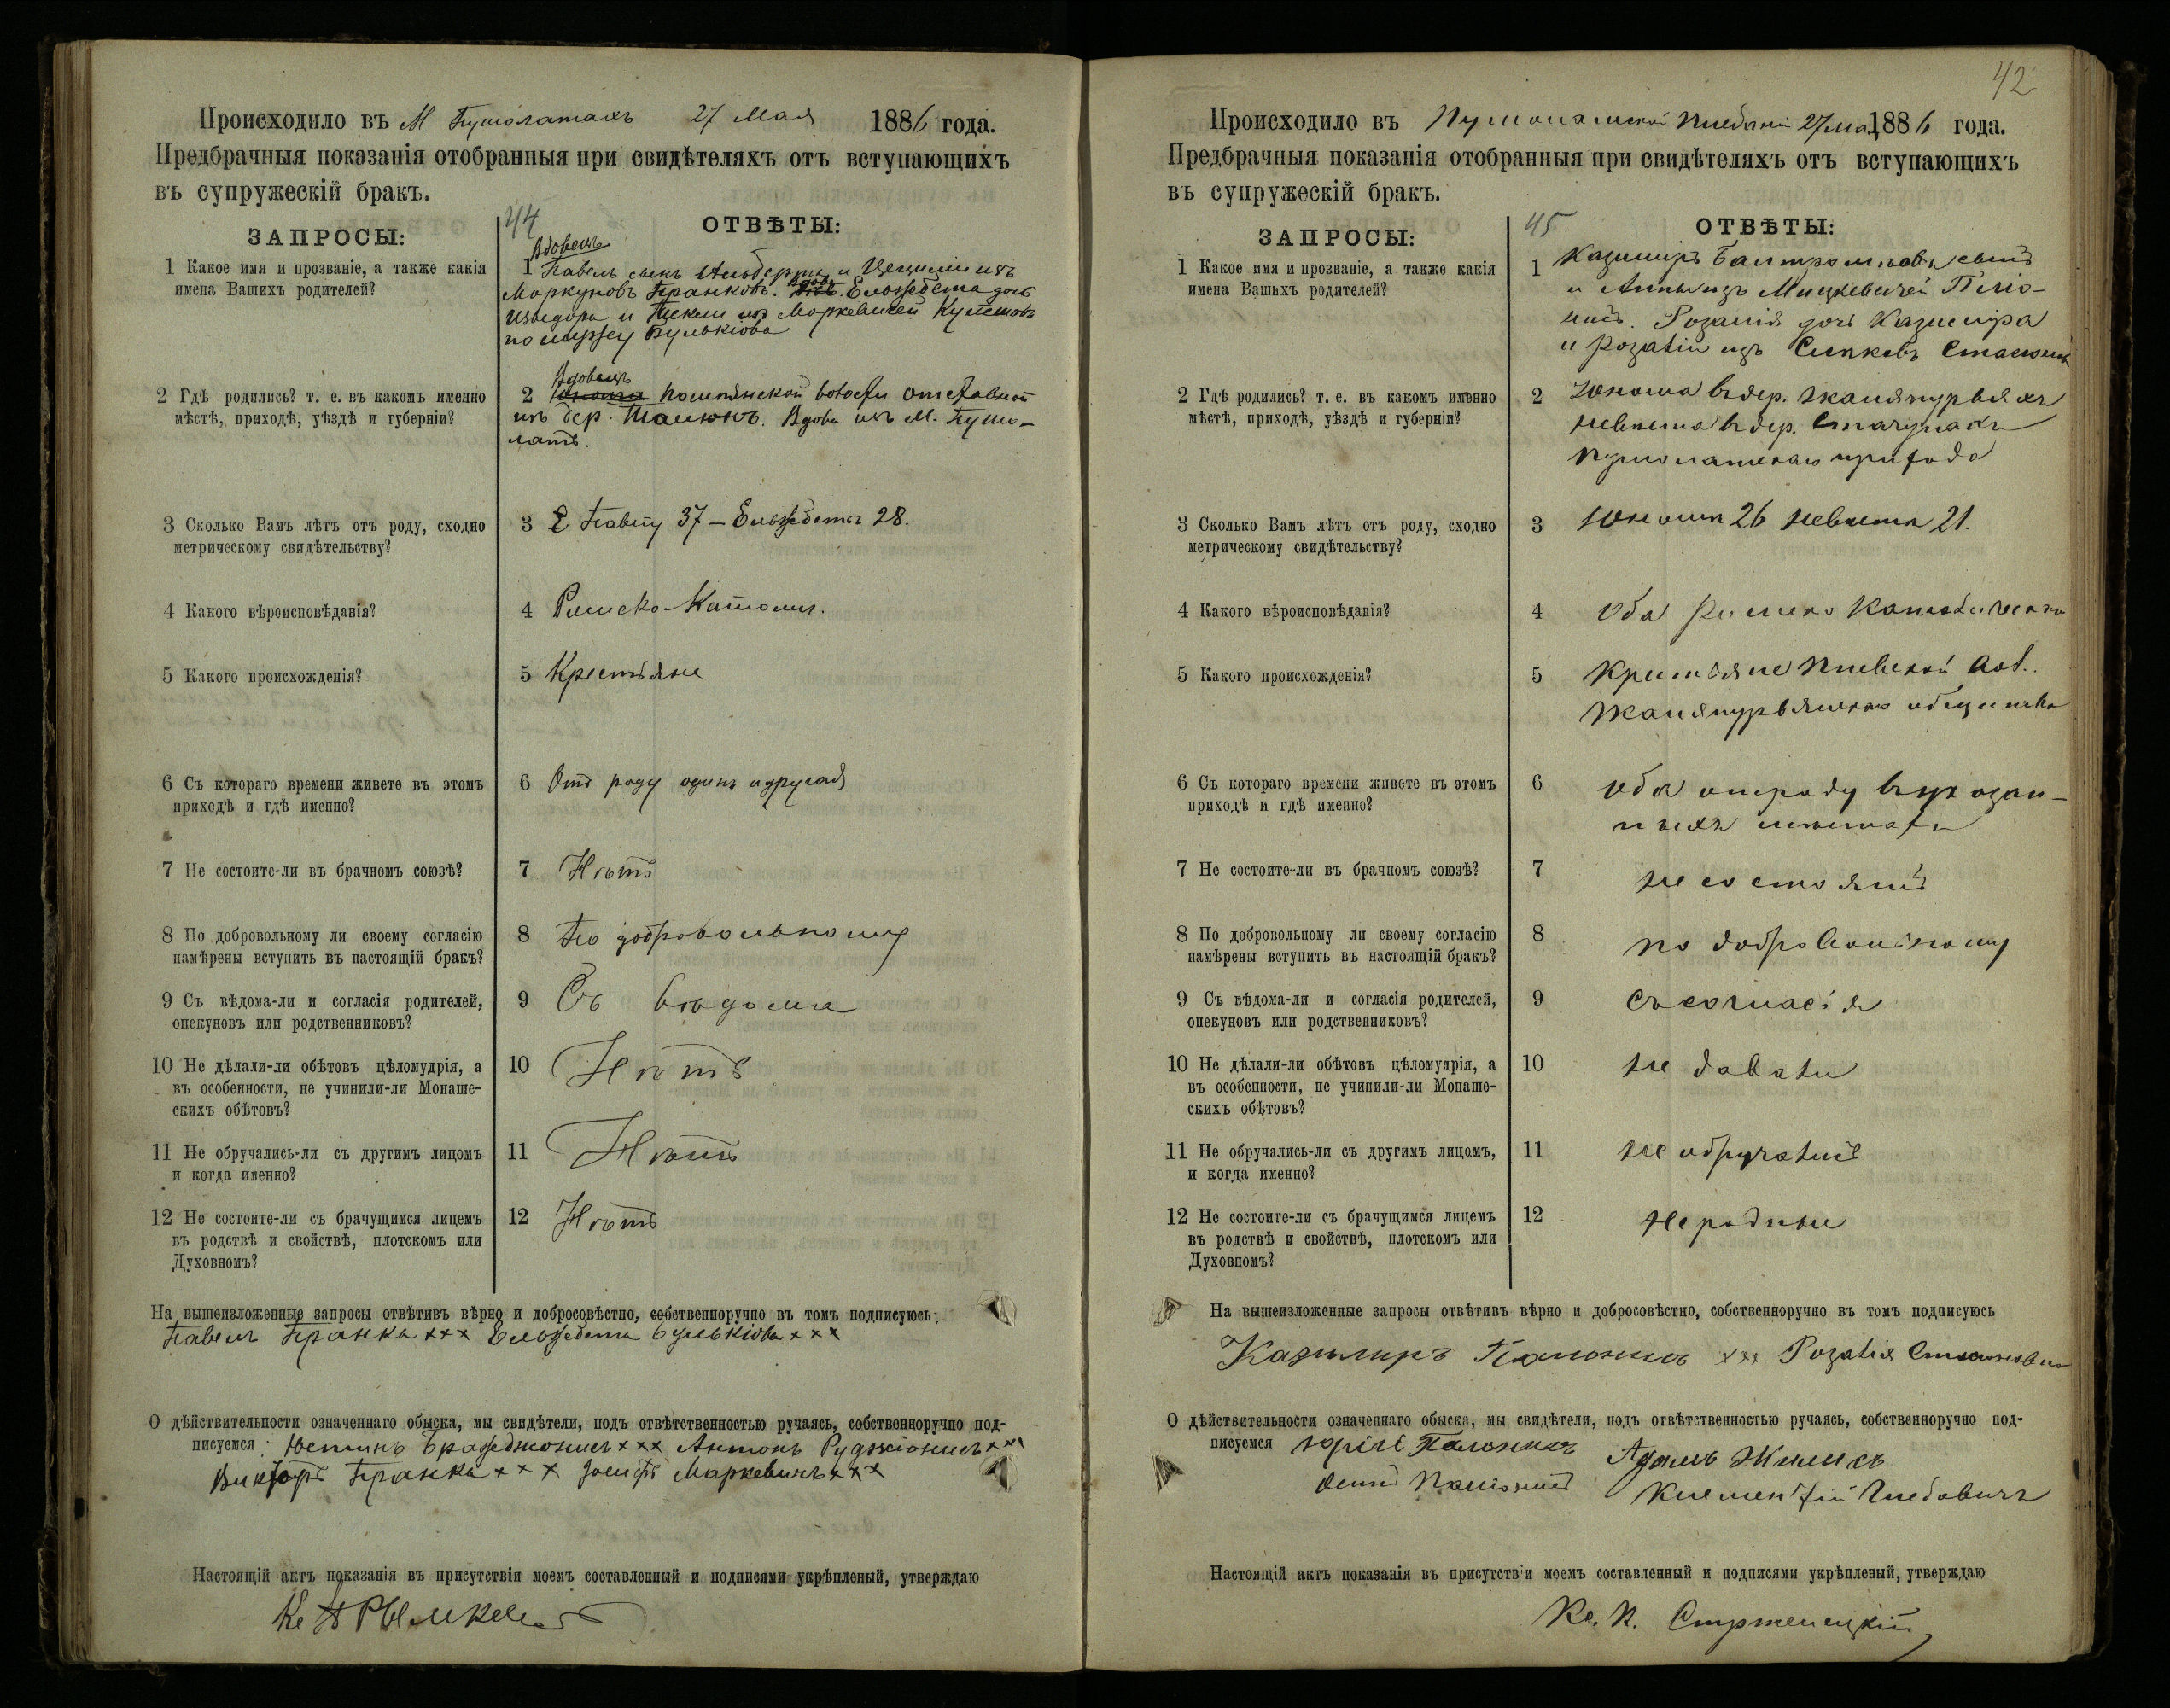 Происходило въ М. Пушолатахъ 27 Мая 1886 года.
Предбрачныя показанія отобранныя при свидѣтеляхъ отъ вступающихъ
въ супружескій бракъ.
44
ЗАПРОСЫ:
ОТВѢТЫ:
1 Какое имя и прозваніе, а также какія
имена Вашихъ родителей?
Вдовецъ
1 Павелъ сынъ Альберта и Цециліи изъ
Моркуновъ Пранковъ. Вдова Ельжбета дочь
Изыдора и Теклы изъ Моркевичей
по мужу Булькова
2 Гдѣ родились? т. е. въ какомъ именно
мѣстѣ, приходѣ, уѣздѣ и губерніи?
Вдовецъ
2 волости отставной
изъ дер. Вдова изъ М. Пушо-
латъ.
3 Сколько Вамъ лѣтъ отъ роду, сходно
метрическому свидѣтельству?
3 Павлу 37 – Ельжбетѣ 28.
4 Какого вѣроисповѣданія?
4 Римско-Католич.
5 Какого происхожденія?
5 Крестьяне
6 Съ котораго времени живете въ этомъ
приходѣ и гдѣ именно?
6 Отъ роду одинъ и другая
7 Не состоите-ли въ брачномъ союзѣ?
7 Нѣтъ
8 По добровольному ли своему согласію
намѣрены вступить въ настоящій бракъ?
8 По добровольному
9 Съ вѣдома-ли и согласія родителей,
опекуновъ или родственниковъ?
9 Съ вѣдома
10 Не дѣлали-ли обѣтовъ цѣломудрія, а
въ особенности, не учинили-ли Монаше-
скихъ обѣтовъ?
10 Нѣтъ
11 Не обручались-ли съ другимъ лицомъ
и когда именно?
11 Нѣтъ
12 Не состоите-ли съ брачущимся лицемъ
въ родствѣ и свойствѣ, плотскомъ или
Духовномъ?
12 Нѣтъ
На вышеизложенные запросы отвѣтивъ вѣрно и добросовѣстно, собственноручно въ томъ подписуюсь
Павелъ Пранка ××× Ельжбета Булькіова ×××
О дѣйствительности означеннаго обыска, мы свидѣтели, подъ отвѣтственностью ручаясь, собственноручно под-
писуемся ××× Антонъ ×××
Викторъ Пранка ××× Іосифъ Маркевичъ ×××
Настоящій актъ показанія въ присутствія моемъ составленный и подписями укрѣпленый, утверждаю
42
Происходило въ Пушолатской Плебаніи 27 мая 1886 года.
Предбрачныя показанія отобранныя при свидѣтеляхъ отъ вступающихъ
въ супружескій бракъ.
45
ЗАПРОСЫ:
ОТВѢТЫ:
1 Какое имя и прозваніе, а также какія
имена Вашихъ родителей?
1 Казимиръ Балтромѣевъ сынъ
и Анны изъ Мицкевичей
Розалія дочь Казимира
и Розаліи изъ
2 Гдѣ родились? т. е. въ какомъ именно
мѣстѣ, приходѣ, уѣздѣ и губерніи?
2 Юноша въ дер.
невѣста въ дер.
Пушолатскаго прихода
3 Сколько Вамъ лѣтъ отъ роду, сходно
метрическому свидѣтельству?
3 Юноша 26 невѣста 21.
4 Какого вѣроисповѣданія?
4 Оба Римско Католическаго
5 Какого происхожденія?
5 Крестьяне вол.
общества
6 Съ котораго времени живете въ этомъ
приходѣ и гдѣ именно?
6 Оба отъ роду въ указан-
ныхъ мѣстахъ
7 Не состоите-ли въ брачномъ союзѣ?
7 не состоимъ
8 По добровольному ли своему согласію
намѣрены вступить въ настоящій бракъ?
8 по добровольному
9 Съ вѣдома-ли и согласія родителей,
опекуновъ или родственниковъ?
9 съ согласія
10 Не дѣлали-ли обѣтовъ цѣломудрія, а
въ особенности, не учинили-ли Монаше-
скихъ обѣтовъ?
10 не давали
11 Не обручались-ли съ другимъ лицомъ,
и когда именно?
11 не обручались
12 Не состоите-ли съ брачущимся лицемъ
въ родствѣ и свойствѣ, плотскомъ или
Духовномъ?
12 не родные
На вышеизложенные запросы отвѣтивъ вѣрно и добросовѣстно, собственноручно въ томъ подписуюсь
Казимиръ ××× Розалія
О дѣйствительности означеннаго обыска, мы свидѣтели, подъ отвѣтственностью ручаясь, собственноручно под-
писуемся Юрій Адамъ
Осипъ Клементій
Настоящій актъ показанія въ присутствіи моемъ составленный и подписями укрѣпленый, утверждаю
Кс. К.